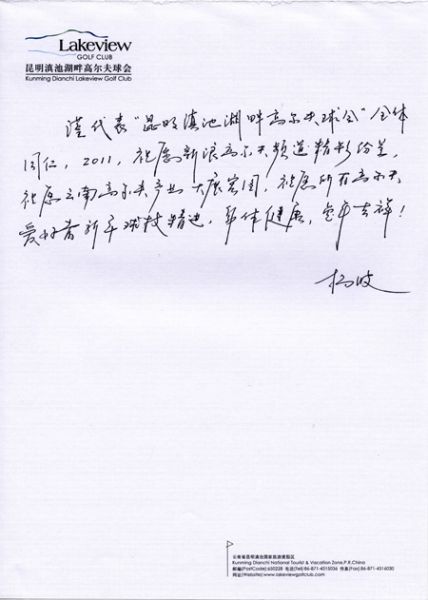 Lakeview
GOLF CLUB
昆明滇池湖畔高尔夫球会
Kunming Dianchi Lakeview Golf Club
谨代表“昆明滇池湖畔高尔夫球会”全体
同仁，2011，祝愿新浪高尔夫频道精彩纷呈，
祝愿云南高尔夫产业大展宏图，祝愿所有高尔夫
爱好者新年球技精进，身体健康，兔年吉祥！
杨波
云南省昆明滇池国家旅游度假区
Kunming Dianchi National Tourist & Vacation Zone,P.R.China
邮编(PostCode):650228 电话(Tel):86-871-4315036 传真(Fax):86-871-4315030
网址(Website):www.lakeviewgolfclub.com